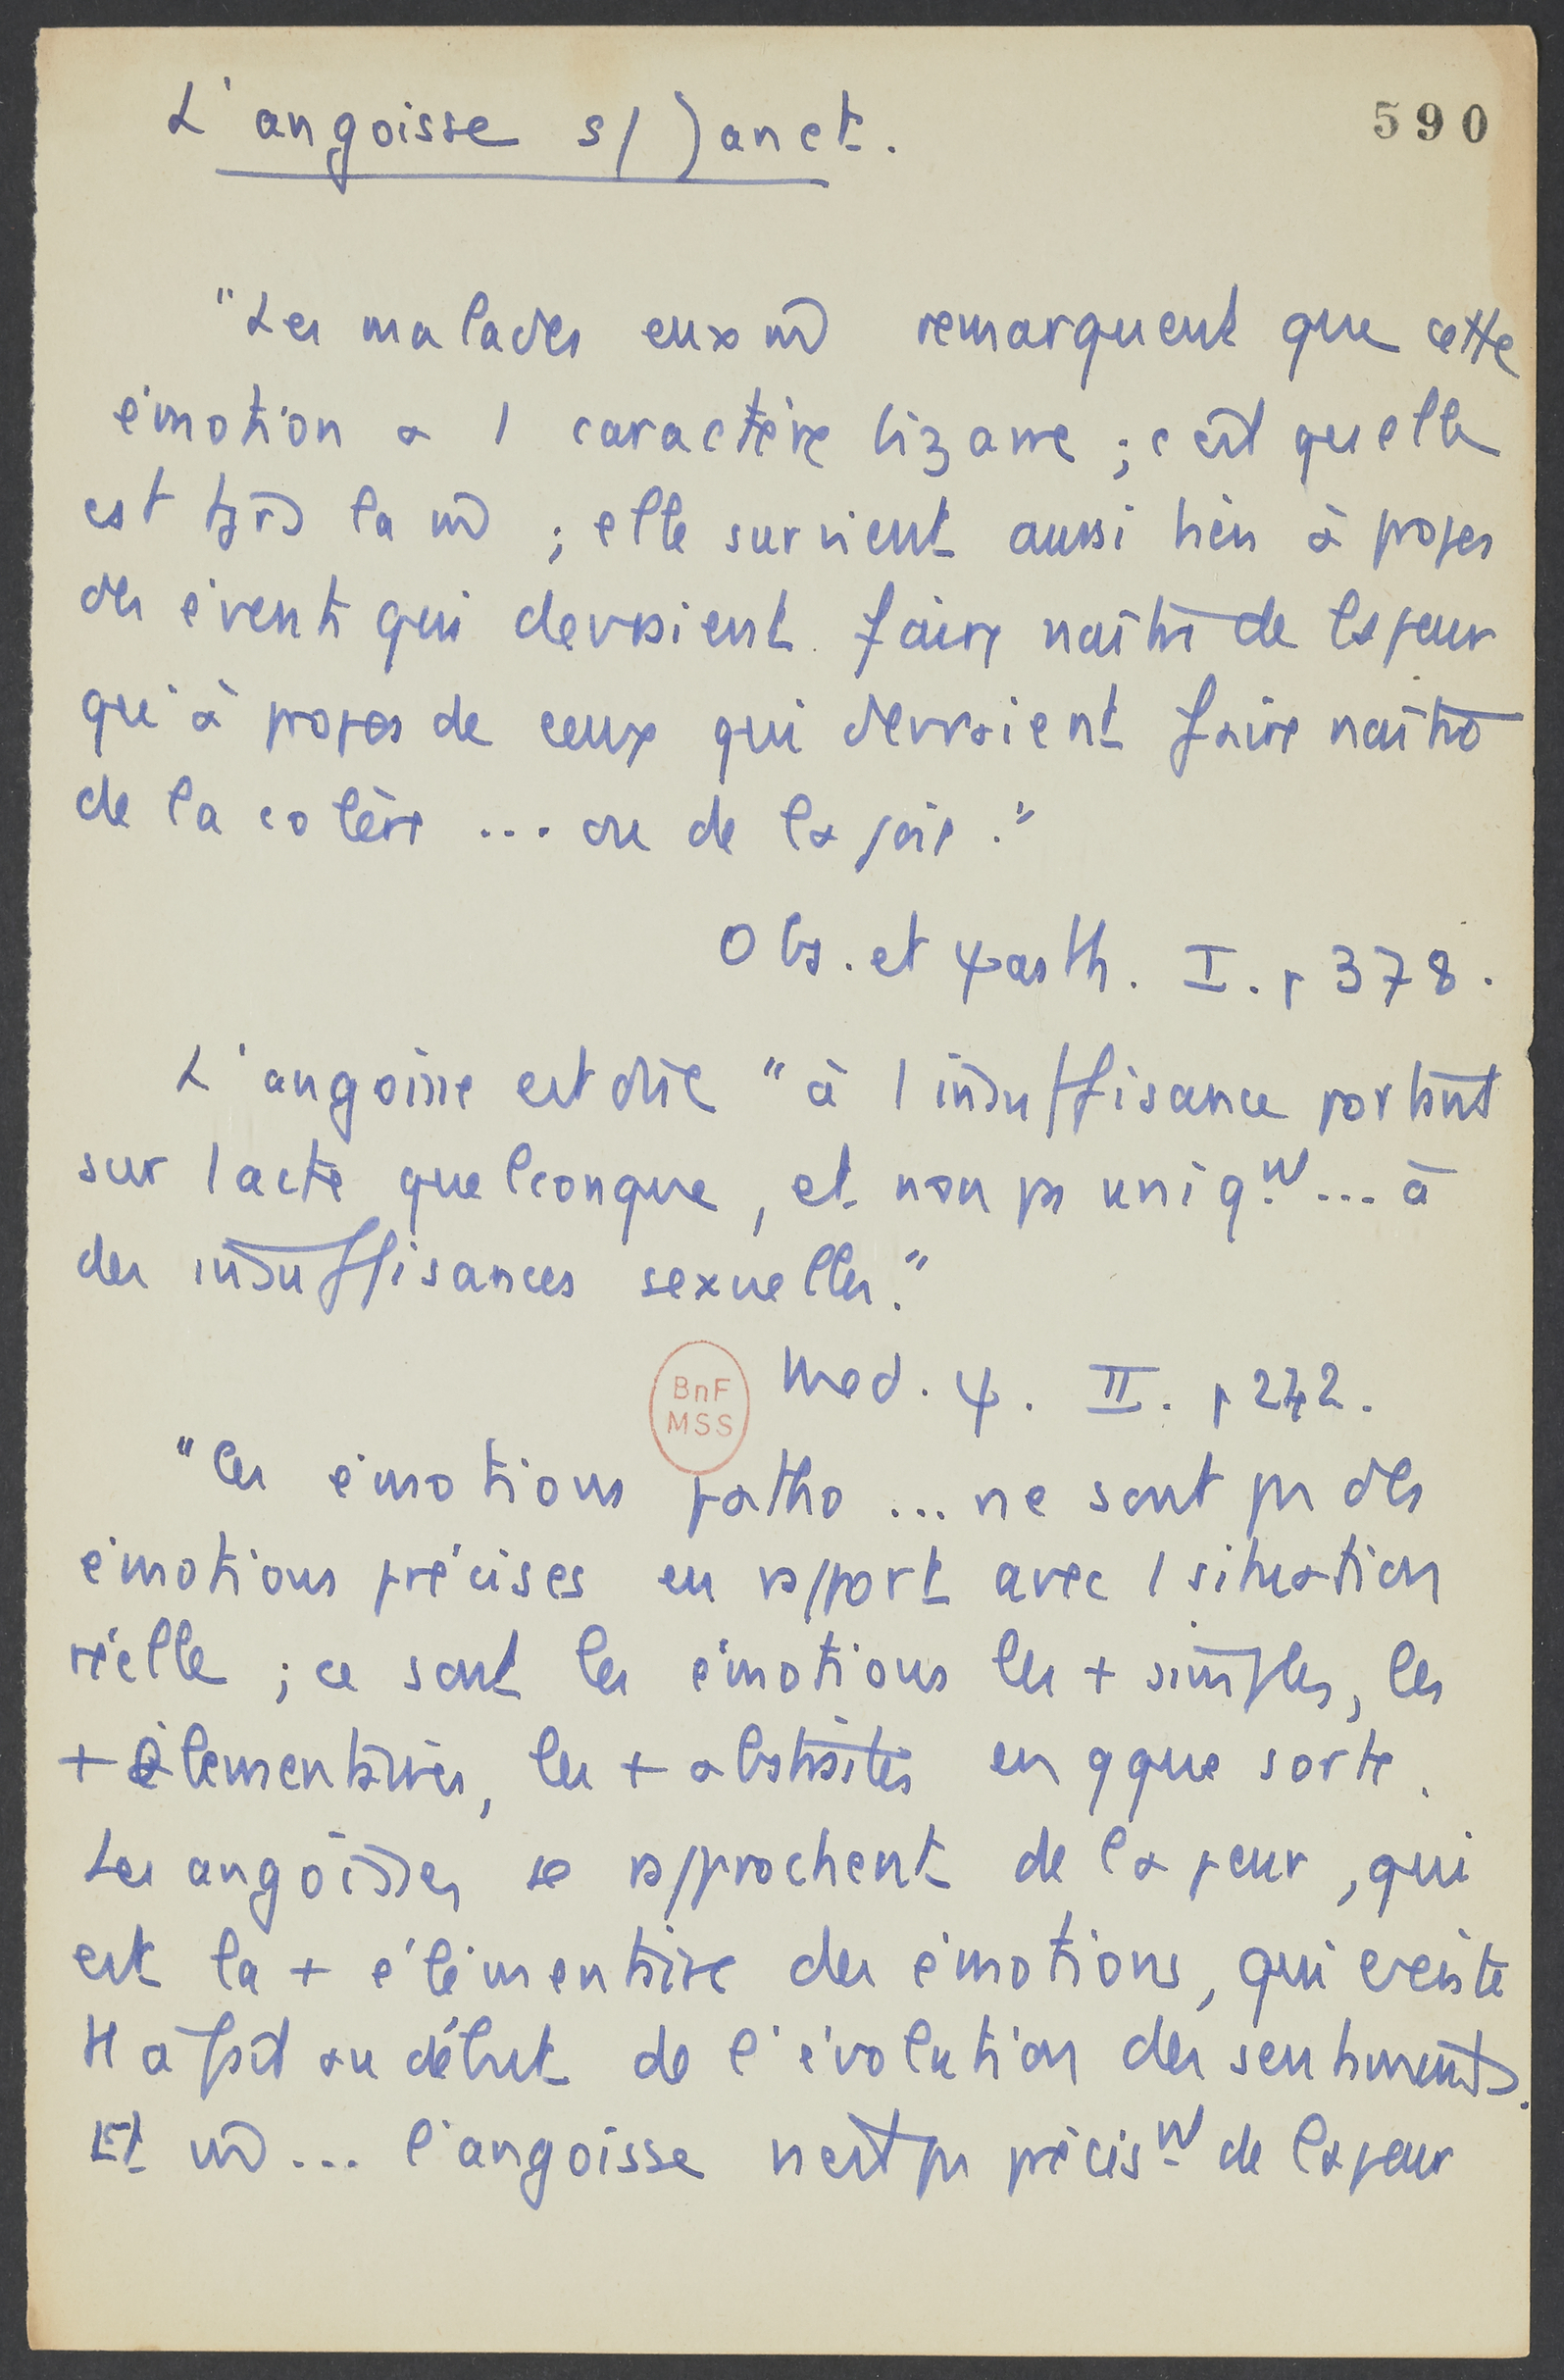 590
L'angoisse s/ Janet.
"Les malades eux m̄ remarquent que cette
émotion a 1 caractère bizarre ; c'est qu'elle
est tjrs la m̄ ; elle survient aussi bien à propos
des événts qui devraient faire naître de la peur
qu'à propos de ceux qui devraient faire naître
de la colère ... ou de la joie."
Obs. et ψasth. I. p 378.
L'angoisse est due "à 1 insuffisance portant
sur 1 acte quelconque, et non ps uniqt ... à
des insuffisances sexuelles."
Med. ψ. II. p 242.
BnF
MSS
"les émotions patho ... ne sont ps des
émotions précises en rapport avec 1 situation
réelle ; ce sont les émotions les + simples, les
+ élémentaires, les + abstraites en qque sorte.
Les angoisses se rapprochent de la peur, qui
est la + élémentaire des émotions, qui existe
tt à fait au début de l'évolution des sentiments.
Et m̄ ... l'angoisse n'est ps précist de la peur